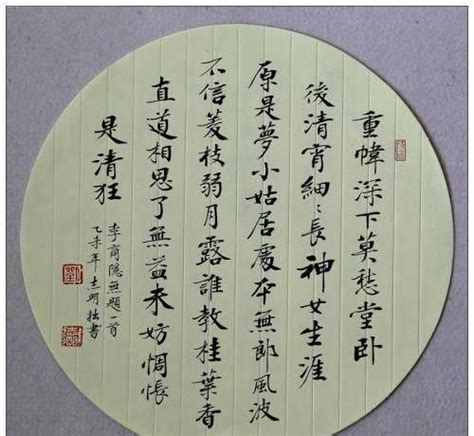 重幃深下莫愁堂卧
後清宵細〻長神女生涯
原是夢小姑居處夲無郎風波
不信菱枝弱月露誰教桂葉香
直道相思了無益未妨惆悵
是清狂
李商隱無題一首
乙未年志明拙書